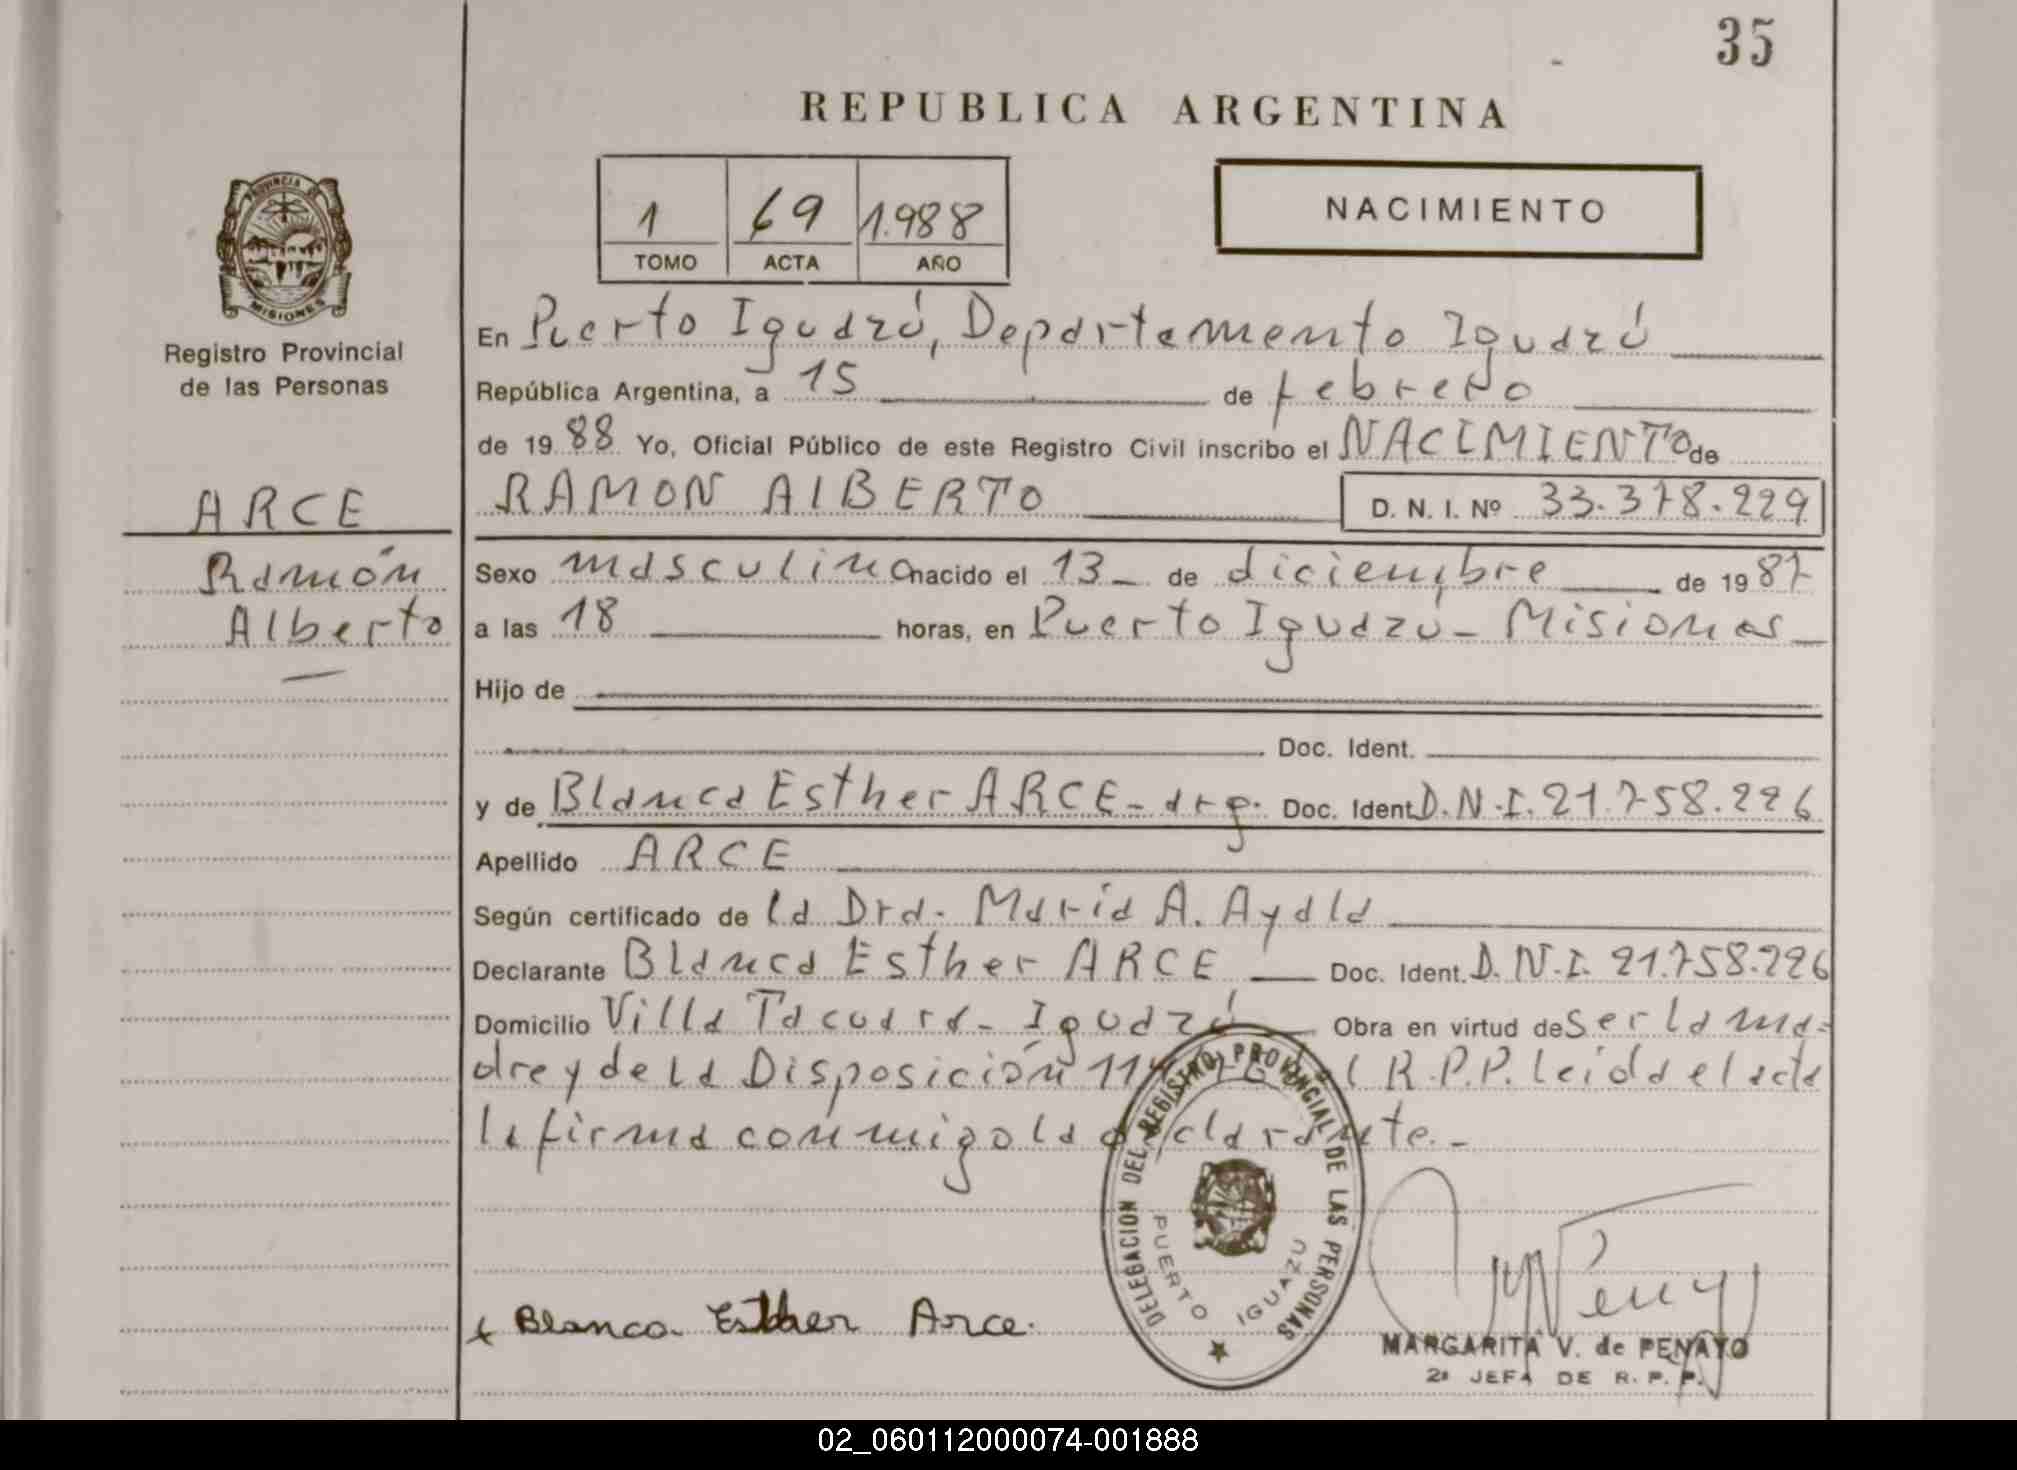 35
REPUBLICA ARGENTINA
1 69 1.988
TOMO ACTA AÑO
NACIMIENTO
PROVINCIA DE
MISIONES
Registro Provincial
de las Personas
ARCE
Ramón
Alberto
En Puerto Iguazú, Departamento Iguazú
República Argentina, a 15 de febrero
de 1988 Yo, Oficial Público de este Registro Civil inscribo el NACIMIENTO de
RAMON ALBERTO D. N. I. Nº 33.378.229
Sexo masculino nacido el 13 de diciembre de 1987
a las 18 horas, en Puerto Iguazú - Misiones
Hijo de
Doc. Ident.
y de Blanca Esther ARCE - arg. Doc. Ident. D.N.I. 21.758.226
Apellido ARCE
Según certificado de la Dra. María A. Ayala
Declarante Blanca Esther ARCE Doc. Ident. D.N.I. 21.758.226
Domicilio Villa Tacuara - Iguazú Obra en virtud de ser la ma=
dre y de la Disposición R.P.P. leída el acta
la firma conmigo la declarante.-
DELEGACION DEL REGISTRO PROVINCIAL DE LAS PERSONAS
PUERTO IGUAZU
x Blanca Esther Arce.
MARGARITA V. de PENAYO
2ª JEFA DE R. P. P.
02_060112000074-001888